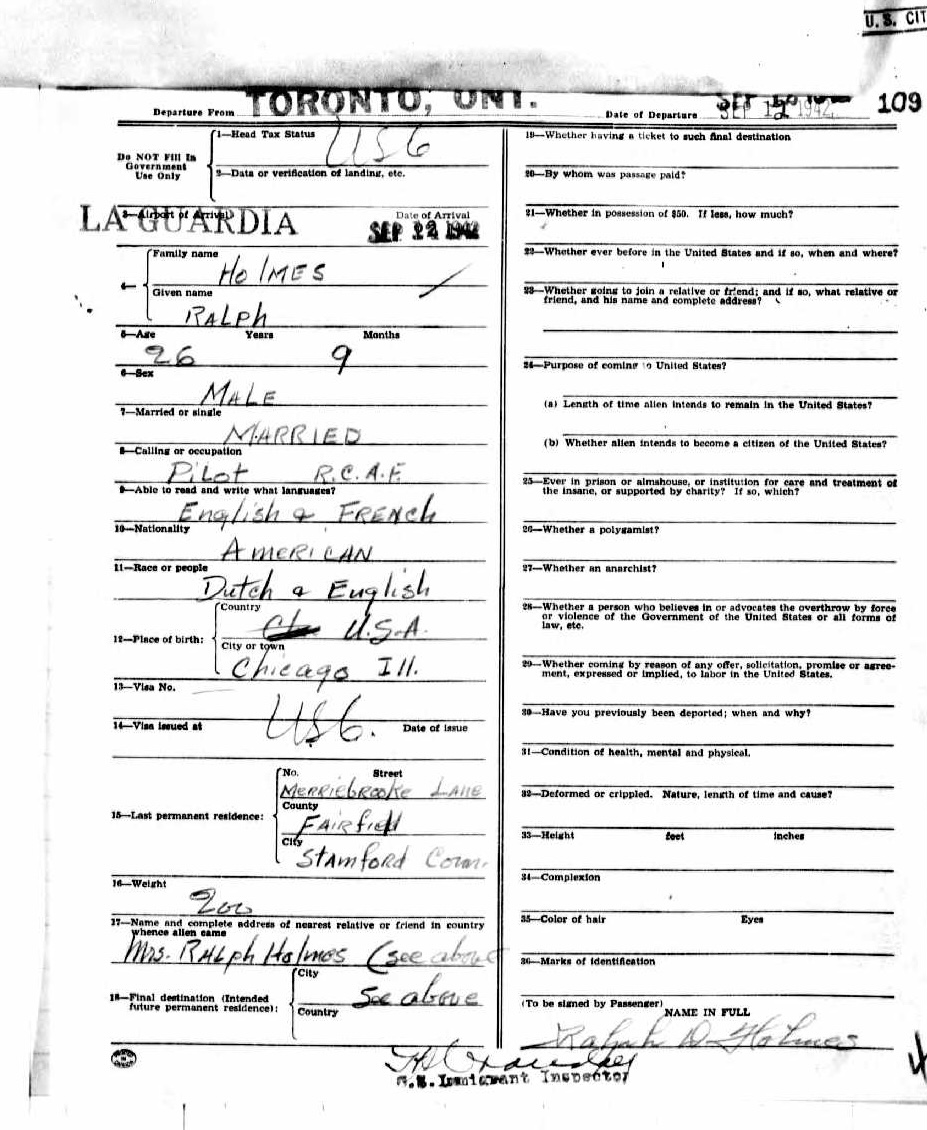 U. S. CIT
Departure From TORONTO, ONT. Date of Departure SEP 12 1942 109
1—Head Tax Status
USG
Do NOT Fill In
Government
Use Only
2—Data or verification of landing, etc.
3—Airport of Arrival) Date of Arrival
LA GUARDIA SEP 1942
4— Family name
HOLMES
Given name
RALPH
5—Age Years Months
26 9
6—Sex
MALE
7—Married or single
MARRIED
8—Calling or occupation
PILOT R.C.A.F.
9—Able to read and write what languages?
English & FRENCH
10—Nationality
AMERICAN
11—Race or people
Dutch & English
12—Place of birth:
Country
U.S.A.
City or town
Chicago Ill.
13—Visa No.
14—Visa issued at Date of issue
USG.
15—Last permanent residence:
No. Street
MERRIEBROOKE LANE
County
FAIRFIELD
City
STAMFORD Conn.
16—Weight
200
17—Name and complete address of nearest relative or friend in country
whence alien came
Mrs. RALPH HOLMES (see above
18—Final destination (Intended
future permanent residence):
City
See above
Country
19—Whether having a ticket to such final destination
20—By whom was passage paid?
21—Whether in possession of $50. If less, how much?
22—Whether ever before in the United States and if so, when and where?
23—Whether going to join a relative or friend; and if so, what relative or
friend, and his name and complete address?
24—Purpose of coming to United States?
(a) Length of time alien intends to remain in the United States?
(b) Whether alien intends to become a citizen of the United States?
25—Ever in prison or almshouse, or institution for care and treatment of
the insane, or supported by charity? If so, which?
26—Whether a polygamist?
27—Whether an anarchist?
28—Whether a person who believes in or advocates the overthrow by force
or violence of the Government of the United States or all forms of
law, etc.
29—Whether coming by reason of any offer, solicitation, promise or agree-
ment, expressed or implied, to labor in the United States.
30—Have you previously been deported; when and why?
31—Condition of health, mental and physical.
32—Deformed or crippled. Nature, length of time and cause?
33—Height feet inches
34—Complexion
35—Color of hair Eyes
36—Marks of identification
(To be signed by Passenger)
NAME IN FULL
Ralph D. Holmes
U.S. Immigrant Inspector